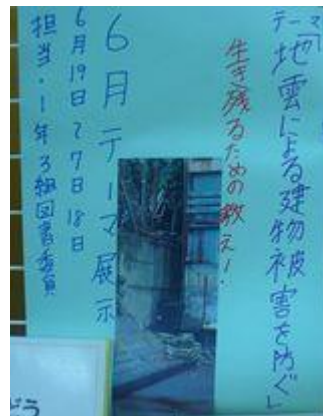 テーマ「地震による建物被害を防ぐ」
生き残るための教え!
6月テーマ展示
6月19日〜7月18日
担当・1年3組図書委員
どう